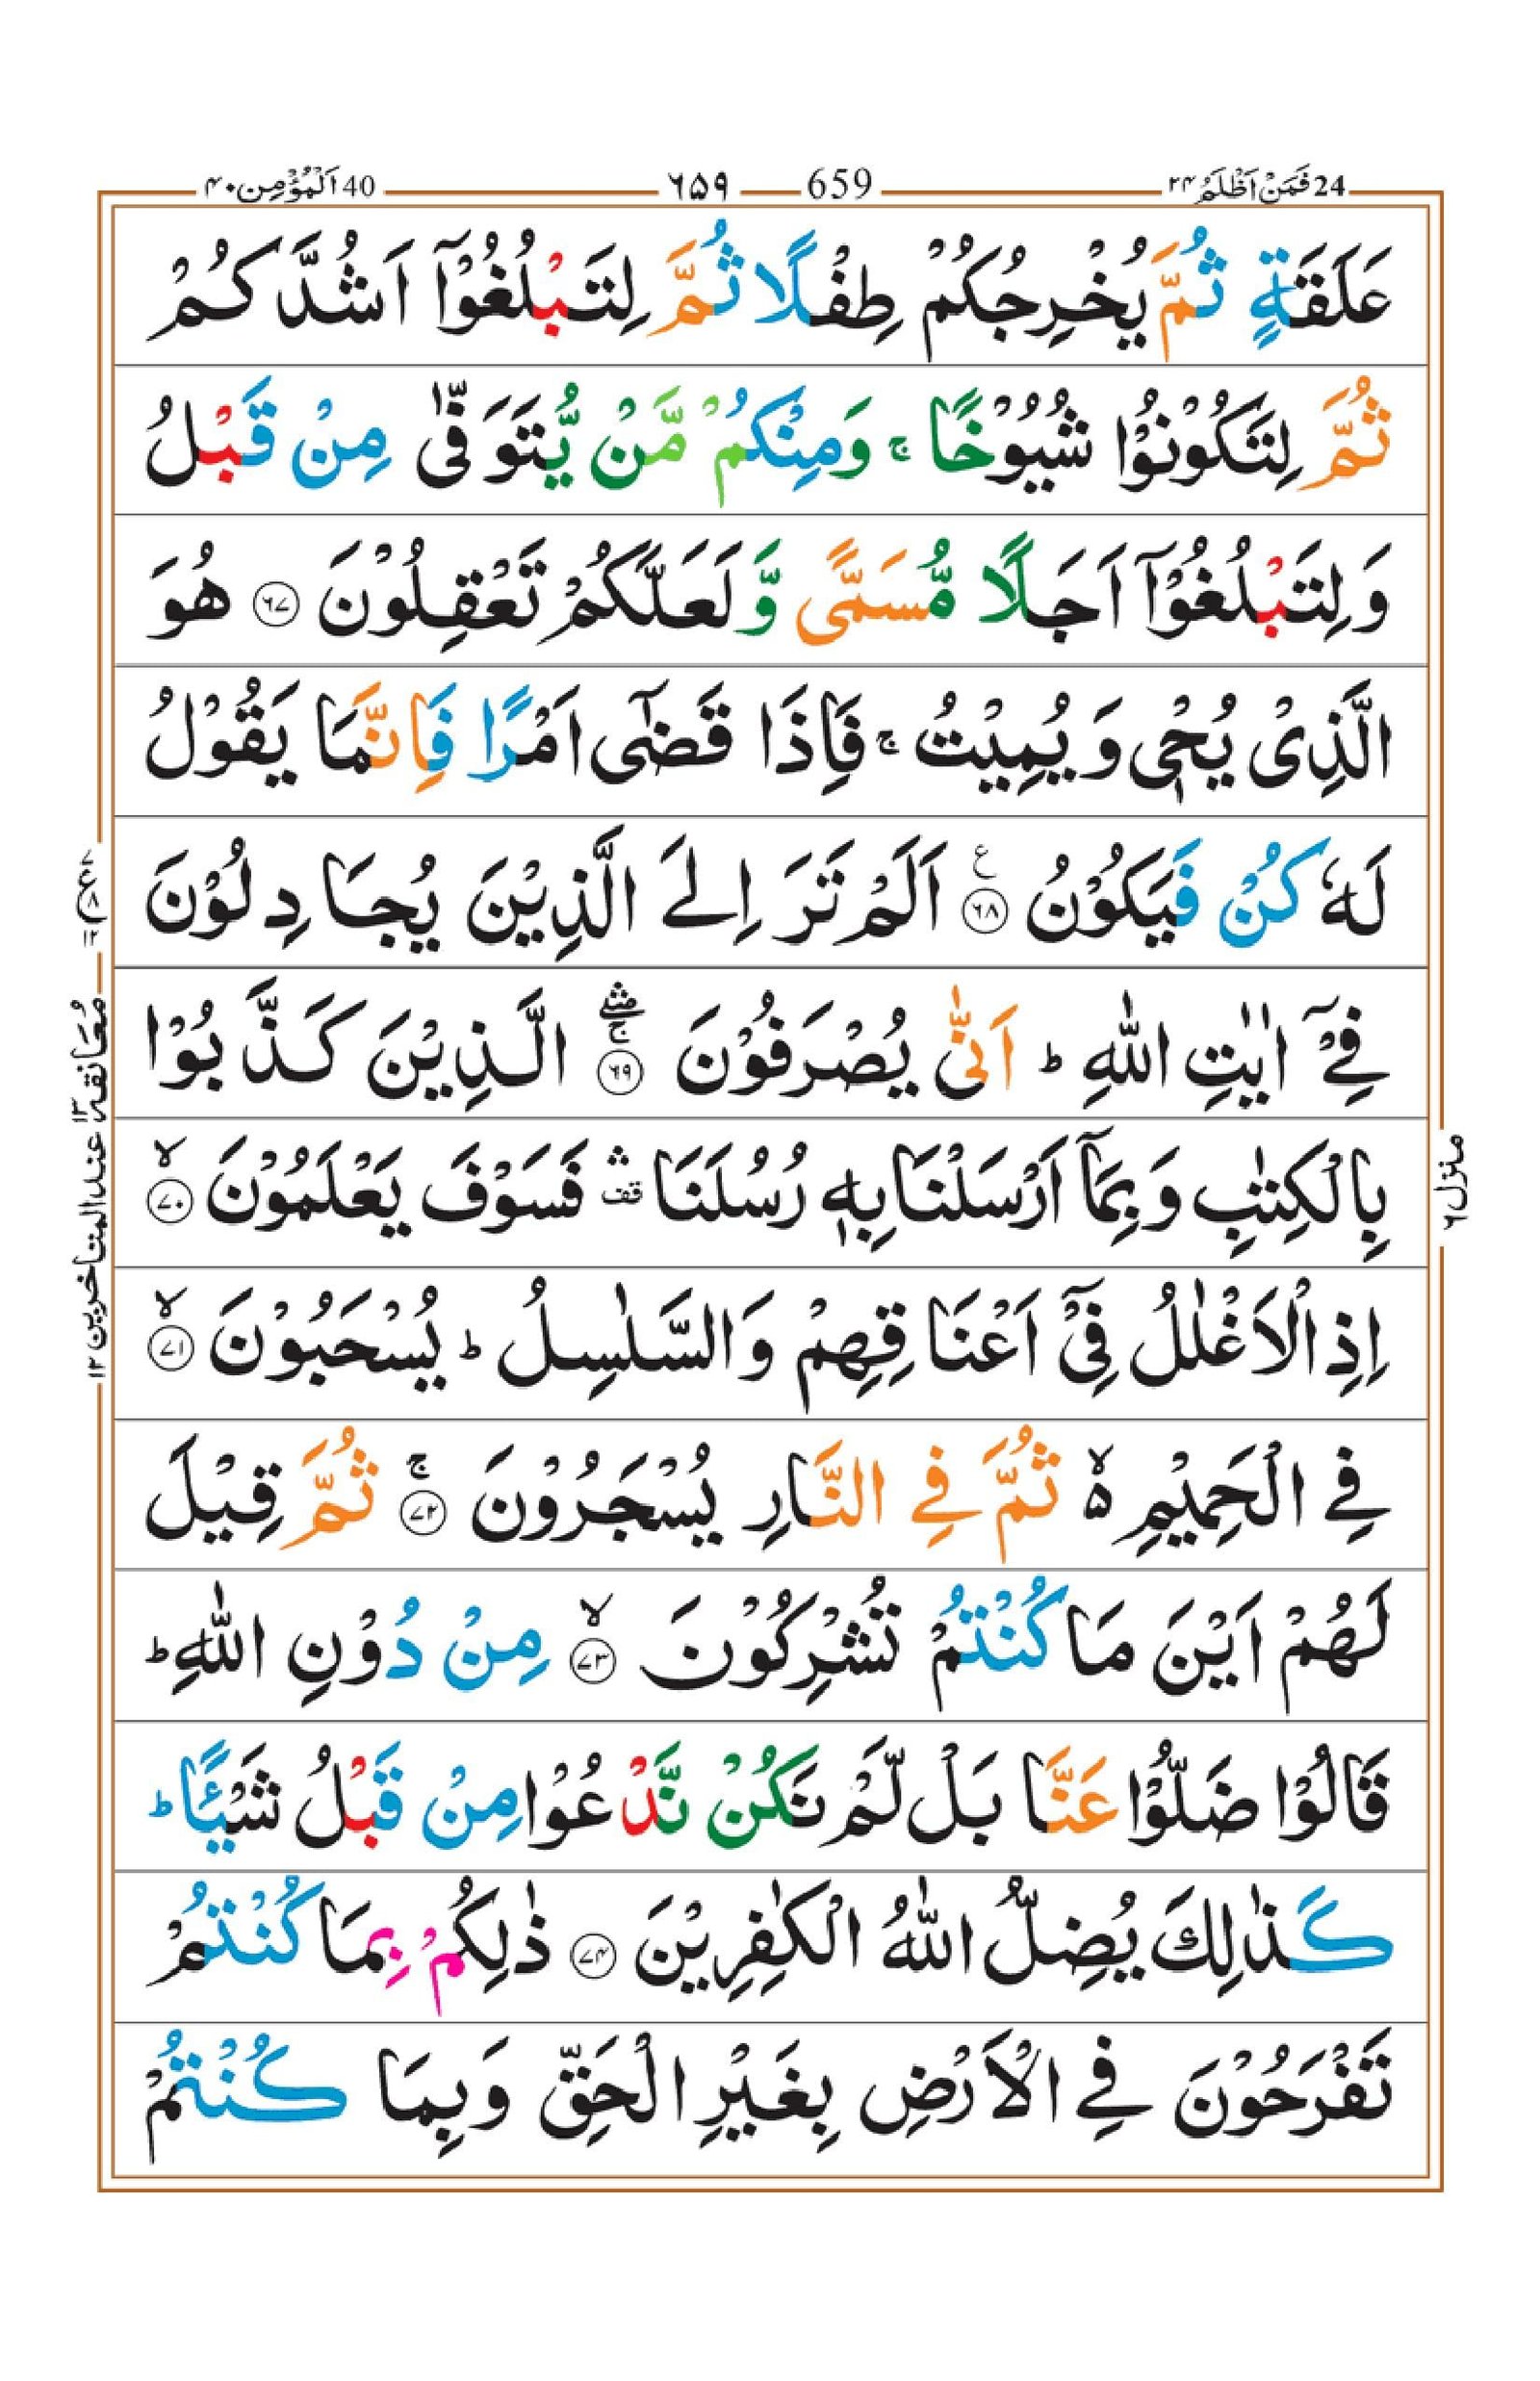 24 فَمَنْ اَظْلَمُ ۲۴
659 ۶۵۹
40 اَلْمُؤْمِن ۴۰
عَلَقَةٍ ثُمَّ يُخْرِجُكُمْ طِفْلًا ثُمَّ لِتَبْلُغُوْۤا اَشُدَّكُمْ
ثُمَّ لِتَكُوْنُوْا شُيُوْخًا ۚ وَمِنْكُمْ مَّنْ يُّتَوَفّٰى مِنْ قَبْلُ
وَلِتَبْلُغُوْۤا اَجَلًا مُّسَمًّى وَّلَعَلَّكُمْ تَعْقِلُوْنَ ﴿۶۷﴾ هُوَ
الَّذِىْ يُحْىٖ وَيُمِيْتُ ۚ فَاِذَا قَضٰۤى اَمْرًا فَاِنَّمَا يَقُوْلُ
لَهٗ كُنْ فَيَكُوْنُ ﴿۶۸﴾ ع اَلَمْ تَرَ اِلَى الَّذِيْنَ يُجَادِلُوْنَ
فِىْۤ اٰيٰتِ اللّٰهِ ؕ اَنّٰى يُصْرَفُوْنَ ﴿۶۹﴾ ۛۚ الَّذِيْنَ كَذَّبُوْا
بِالْكِتٰبِ وَبِمَاۤ اَرْسَلْنَا بِهٖ رُسُلَنَا ۛ قف فَسَوْفَ يَعْلَمُوْنَ ﴿۷۰﴾ ۙ
اِذِ الْاَغْلٰلُ فِىْۤ اَعْنَاقِهِمْ وَالسَّلٰسِلُ ؕ يُسْحَبُوْنَ ﴿۷۱﴾ ۙ
فِى الْحَمِيْمِ ۙ۬ ثُمَّ فِى النَّارِ يُسْجَرُوْنَ ﴿۷۲﴾ ۚ ثُمَّ قِيْلَ
لَهُمْ اَيْنَ مَا كُنْتُمْ تُشْرِكُوْنَ ﴿۷۳﴾ ۙ مِنْ دُوْنِ اللّٰهِ ؕ
قَالُوْا ضَلُّوْا عَنَّا بَلْ لَّمْ نَكُنْ نَّدْعُوْا مِنْ قَبْلُ شَيْـًٔا ؕ
كَذٰلِكَ يُضِلُّ اللّٰهُ الْكٰفِرِيْنَ ﴿۷۴﴾ ذٰلِكُمْ بِمَا كُنْتُمْ
تَفْرَحُوْنَ فِى الْاَرْضِ بِغَيْرِ الْحَقِّ وَبِمَا كُنْتُمْ
منزل ۶
۷ ع ۸ ۱۲
مُعَانقة ۱۳ عند المتاخرين ۱۲